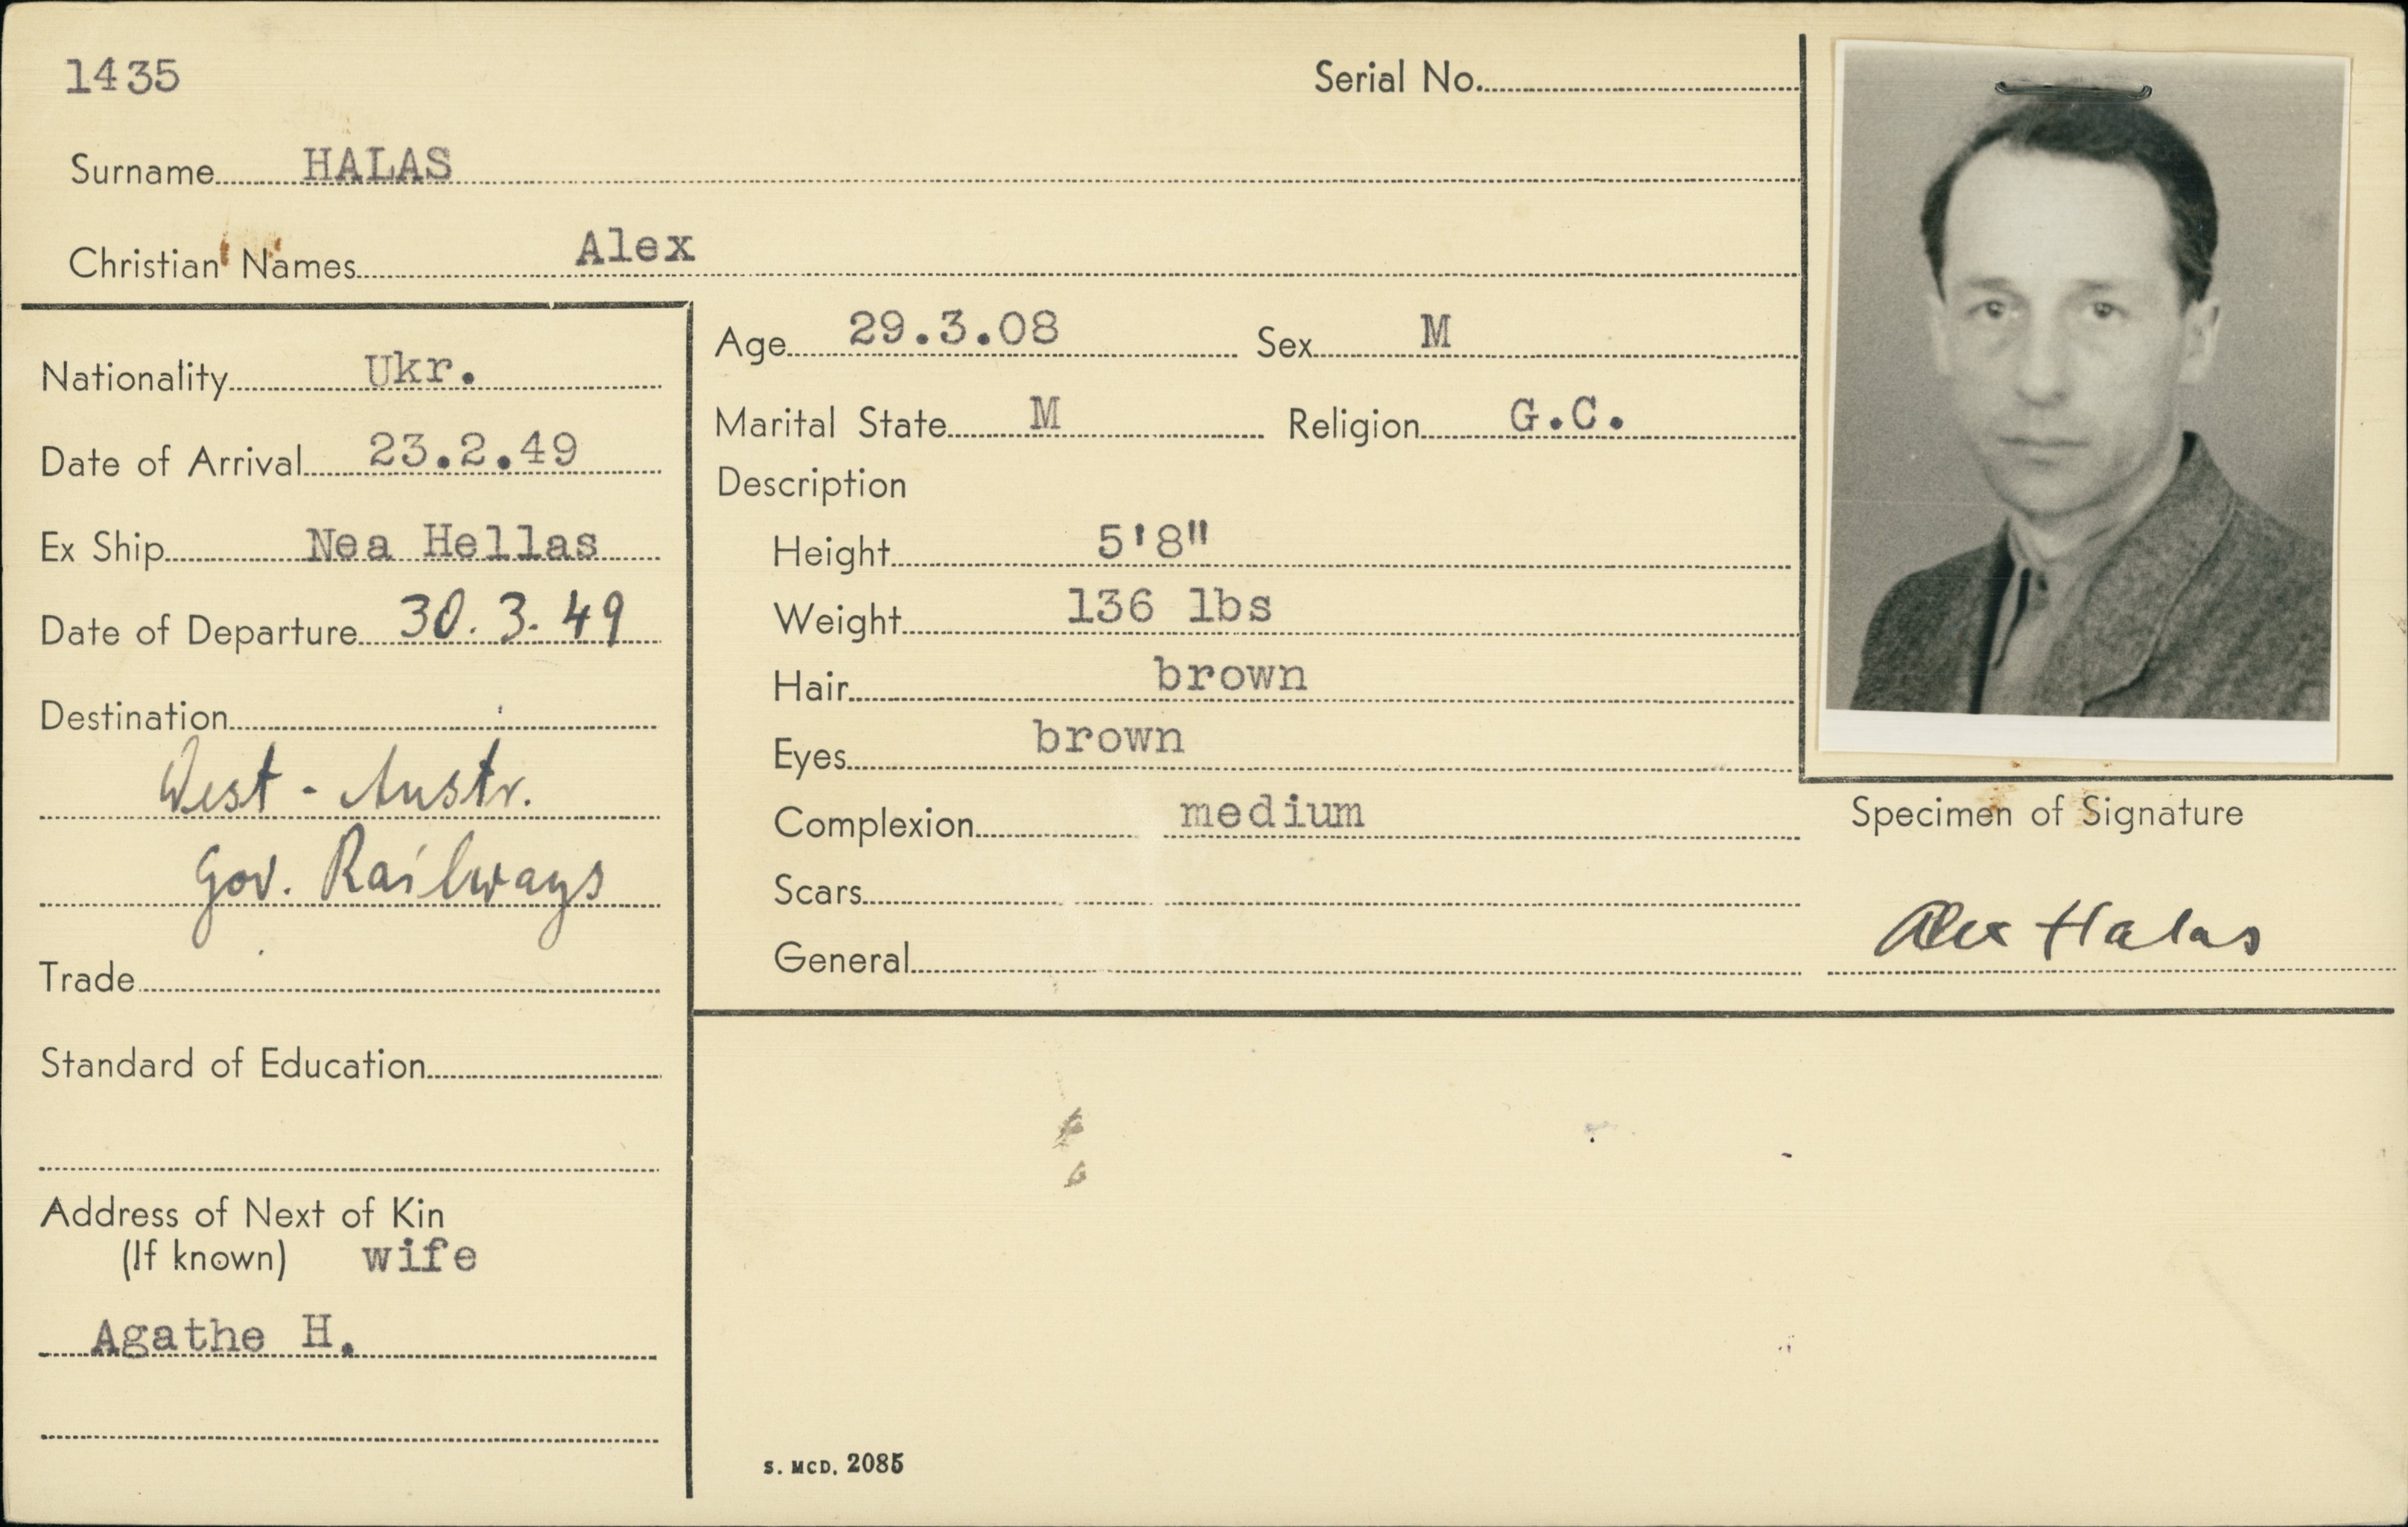 1435
Serial No.
Surname HALAS
Christian Names Alex
Nationality Ukr.
Date of Arrival 23.2.49
Ex Ship Nea Hellas
Date of Departure 30.3.49
Destination
West - Austr.
Gov. Railways
Trade
Standard of Education
Address of Next of Kin
(If known) wife
Agathe H.
Age 29.3.08 Sex M
Marital State M Religion G.C.
Description
Height 5'8"
Weight 136 lbs
Hair brown
Eyes brown
Complexion medium
Scars
General
Specimen of Signature
Alex Halas
S. MCD. 2085